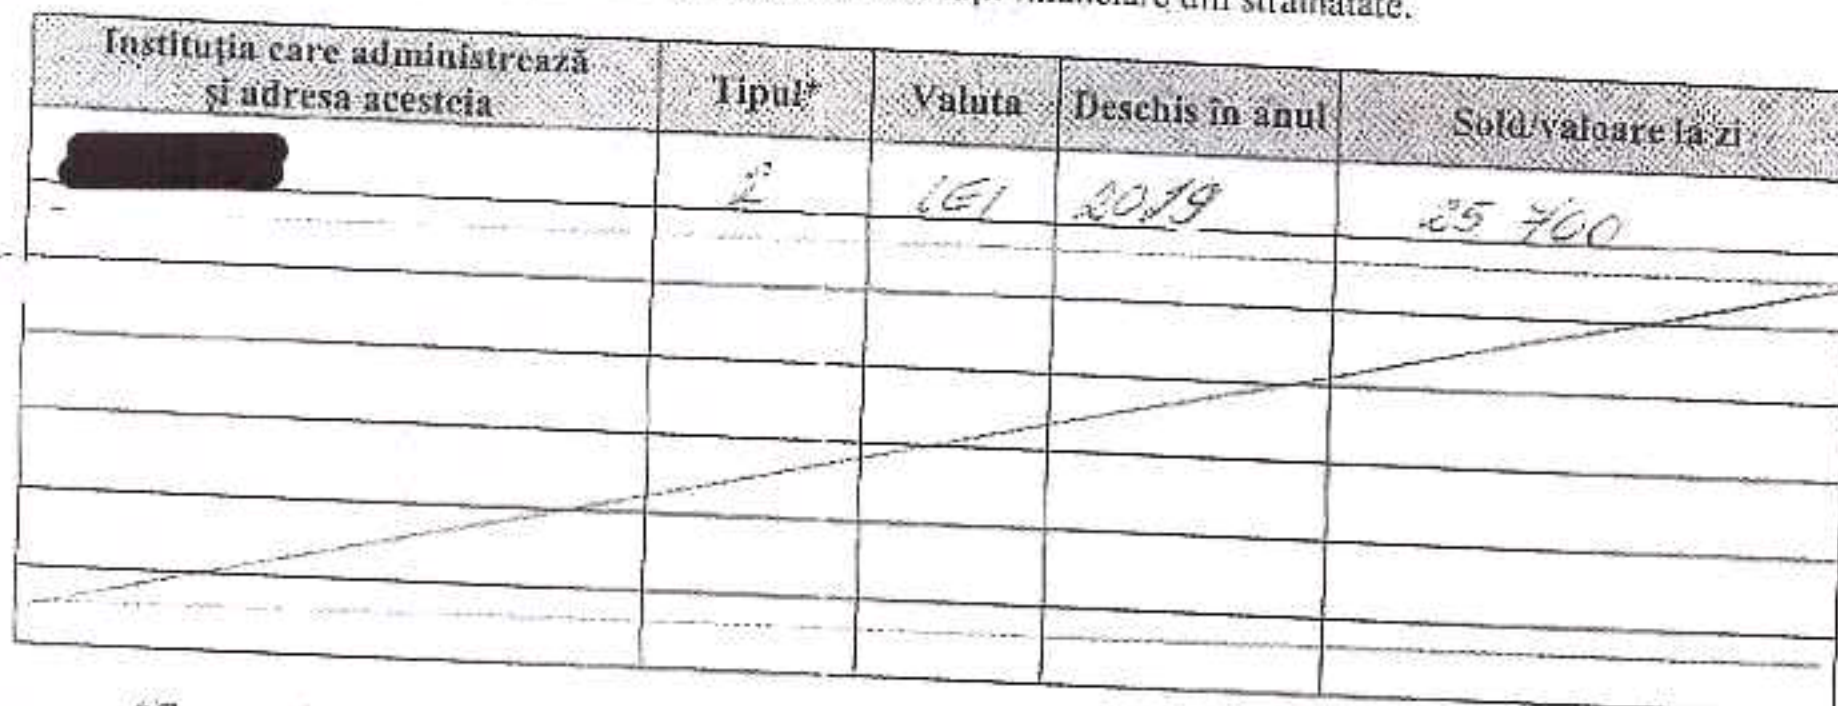 din străinătate.
Instituția care administrează
și adresa acesteia
Tipul*
Valuta
Deschis în anul
Sold/valoare la zi
2 LEI 2019 25 700